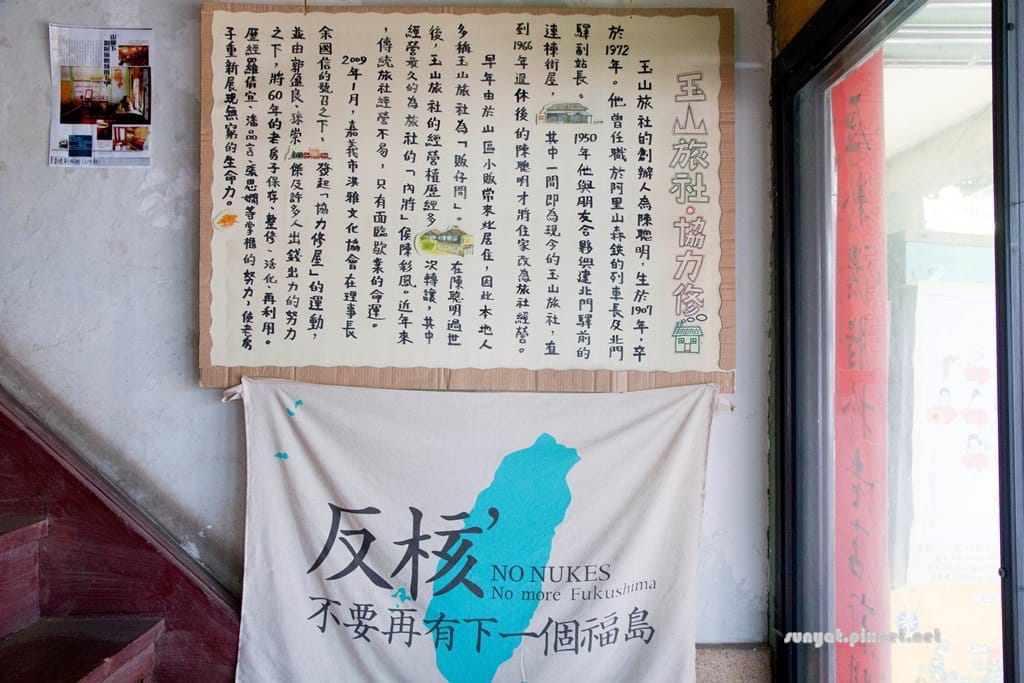 玉山旅社·協力修
玉山旅社的創辦人為陳聰明,生於1907年,卒
於1972年。他曾任職於阿里山森鐵的列車長及北門
驛副站長。1950年他與朋友合夥興建北門驛前的
連棟街屋,其中一間即為現今的玉山旅社,直
到1966年退休後的陳聰明才將住家改為旅社經營。
早年由於山區小販常來此居住,因此本地人
多稱玉山旅社為「販仔間」。在陳聰明過世
後,玉山旅社的經營權歷經多次轉讓,其中
經營最久的為旅社的「內將」侯陳彩鳳。近年來
,傳統旅社經營不易,只有面臨歇業的命運。
2009年1月,嘉義市洪雅文化協會在理事長
余國信的號召之下,發起「協力修屋」的運動,
並由郭盈良、涂崇傑及許多人出錢出力的努力
之下,將60年的老房子保存、整修、活化、再利用。
歷經羅信宜、潘品言、張思嫻等掌櫃的努力,使老房
子重新展現無窮的生命力。
反核'
NO NUKES
No more Fukushima
不要再有下一個福島
sunyat.pixnet.net